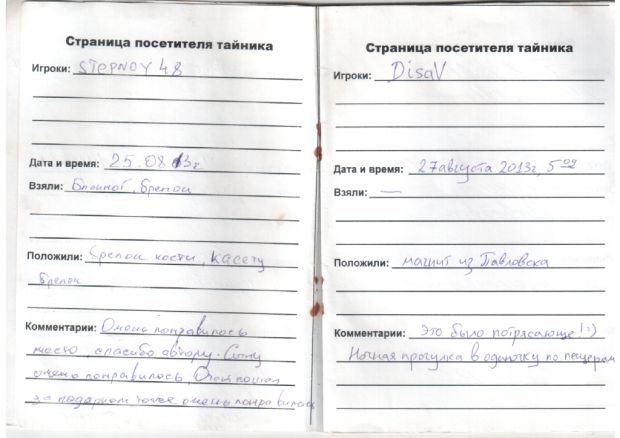 Страница посетителя тайника
Игроки: STEPNOY 48
Дата и время: 25.08.13г
Взяли: Блокнот, брелок
Положили: брелок кости, касету
брелок
Комментарии: Очень понравилось
место, спасибо автору. Сыну
очень понравилось,
за подарком тоже очень понравилось
Страница посетителя тайника
Игроки: DisaV
Дата и время: 27 августа 2013г, 5 00
Взяли: —
Положили: магнит из Павловска
Комментарии: Это было потрясающе! :)
Ночная прогулка в одиночку по пещерам